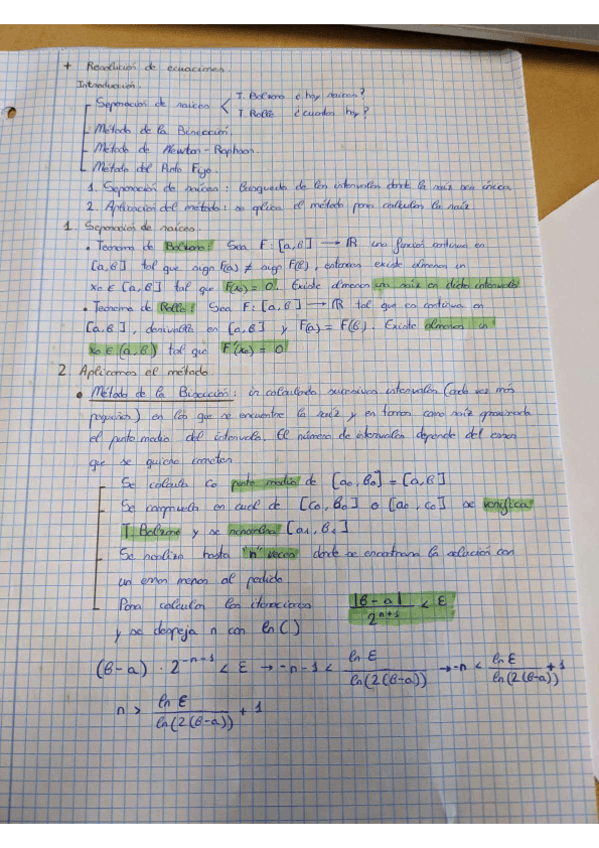 + Resolución de ecuaciones.
Introducción.
Separación de raíces < T. Bolzano ¿hay raíces?
T. Rolle ¿cuantas hay?
Método de la Bisección.
Método de Newton-Raphson.
Método del Punto Fijo.
1. Separación de raíces: Busqueda de los intervalos donde la raíz sea única
2. Aplicación del método: se aplica el método para calcular la raíz
1. Separación de raíces.
• Teorema de Bolzano: Sea F: [a,b] → ℝ una función continua en
[a,b] tal que sign F(a) ≠ sign F(b), entonces existe almenos un
x₀ ∈ [a,b] tal que F(x₀) = 0. Existe almenos una raíz en dicho intervalo
• Teorema de Rolle: Sea F: [a,b] → ℝ tal que es continua en
[a,b], derivable en (a,b) y F(a) = F(b). Existe almenos un
x₀ ∈ (a,b) tal que F'(x₀) = 0
2 Aplicamos el método.
• Método de la Bisección: ir calculando sucesivos intervalos (cada vez más
pequeños) en los que se encuentre la raíz y en tomar como raíz aproximada
el punto medio del intervalo. El número de intervalos depende del error
que se quiera cometer
Se calcula c₀ punto medio de [a₀,b₀] = [a,b]
Se comprueba en cual de [c₀,b₀] o [a₀,c₀] se verifica
T. Bolzano y se renombra [a₁,b₁]
Se realiza hasta "n" veces donde se encontrara la solución con
un error menor al pedido
Para calcular las iteraciones |b-a| / 2ⁿ⁺¹ < ε
y se despeja n con ln()
(b-a) · 2⁻ⁿ⁻¹ < ε → -n-1 < ln ε / ln(2(b-a)) → -n < ln ε / ln(2(b-a)) + 1
n > ln ε / ln(2(b-a)) + 1